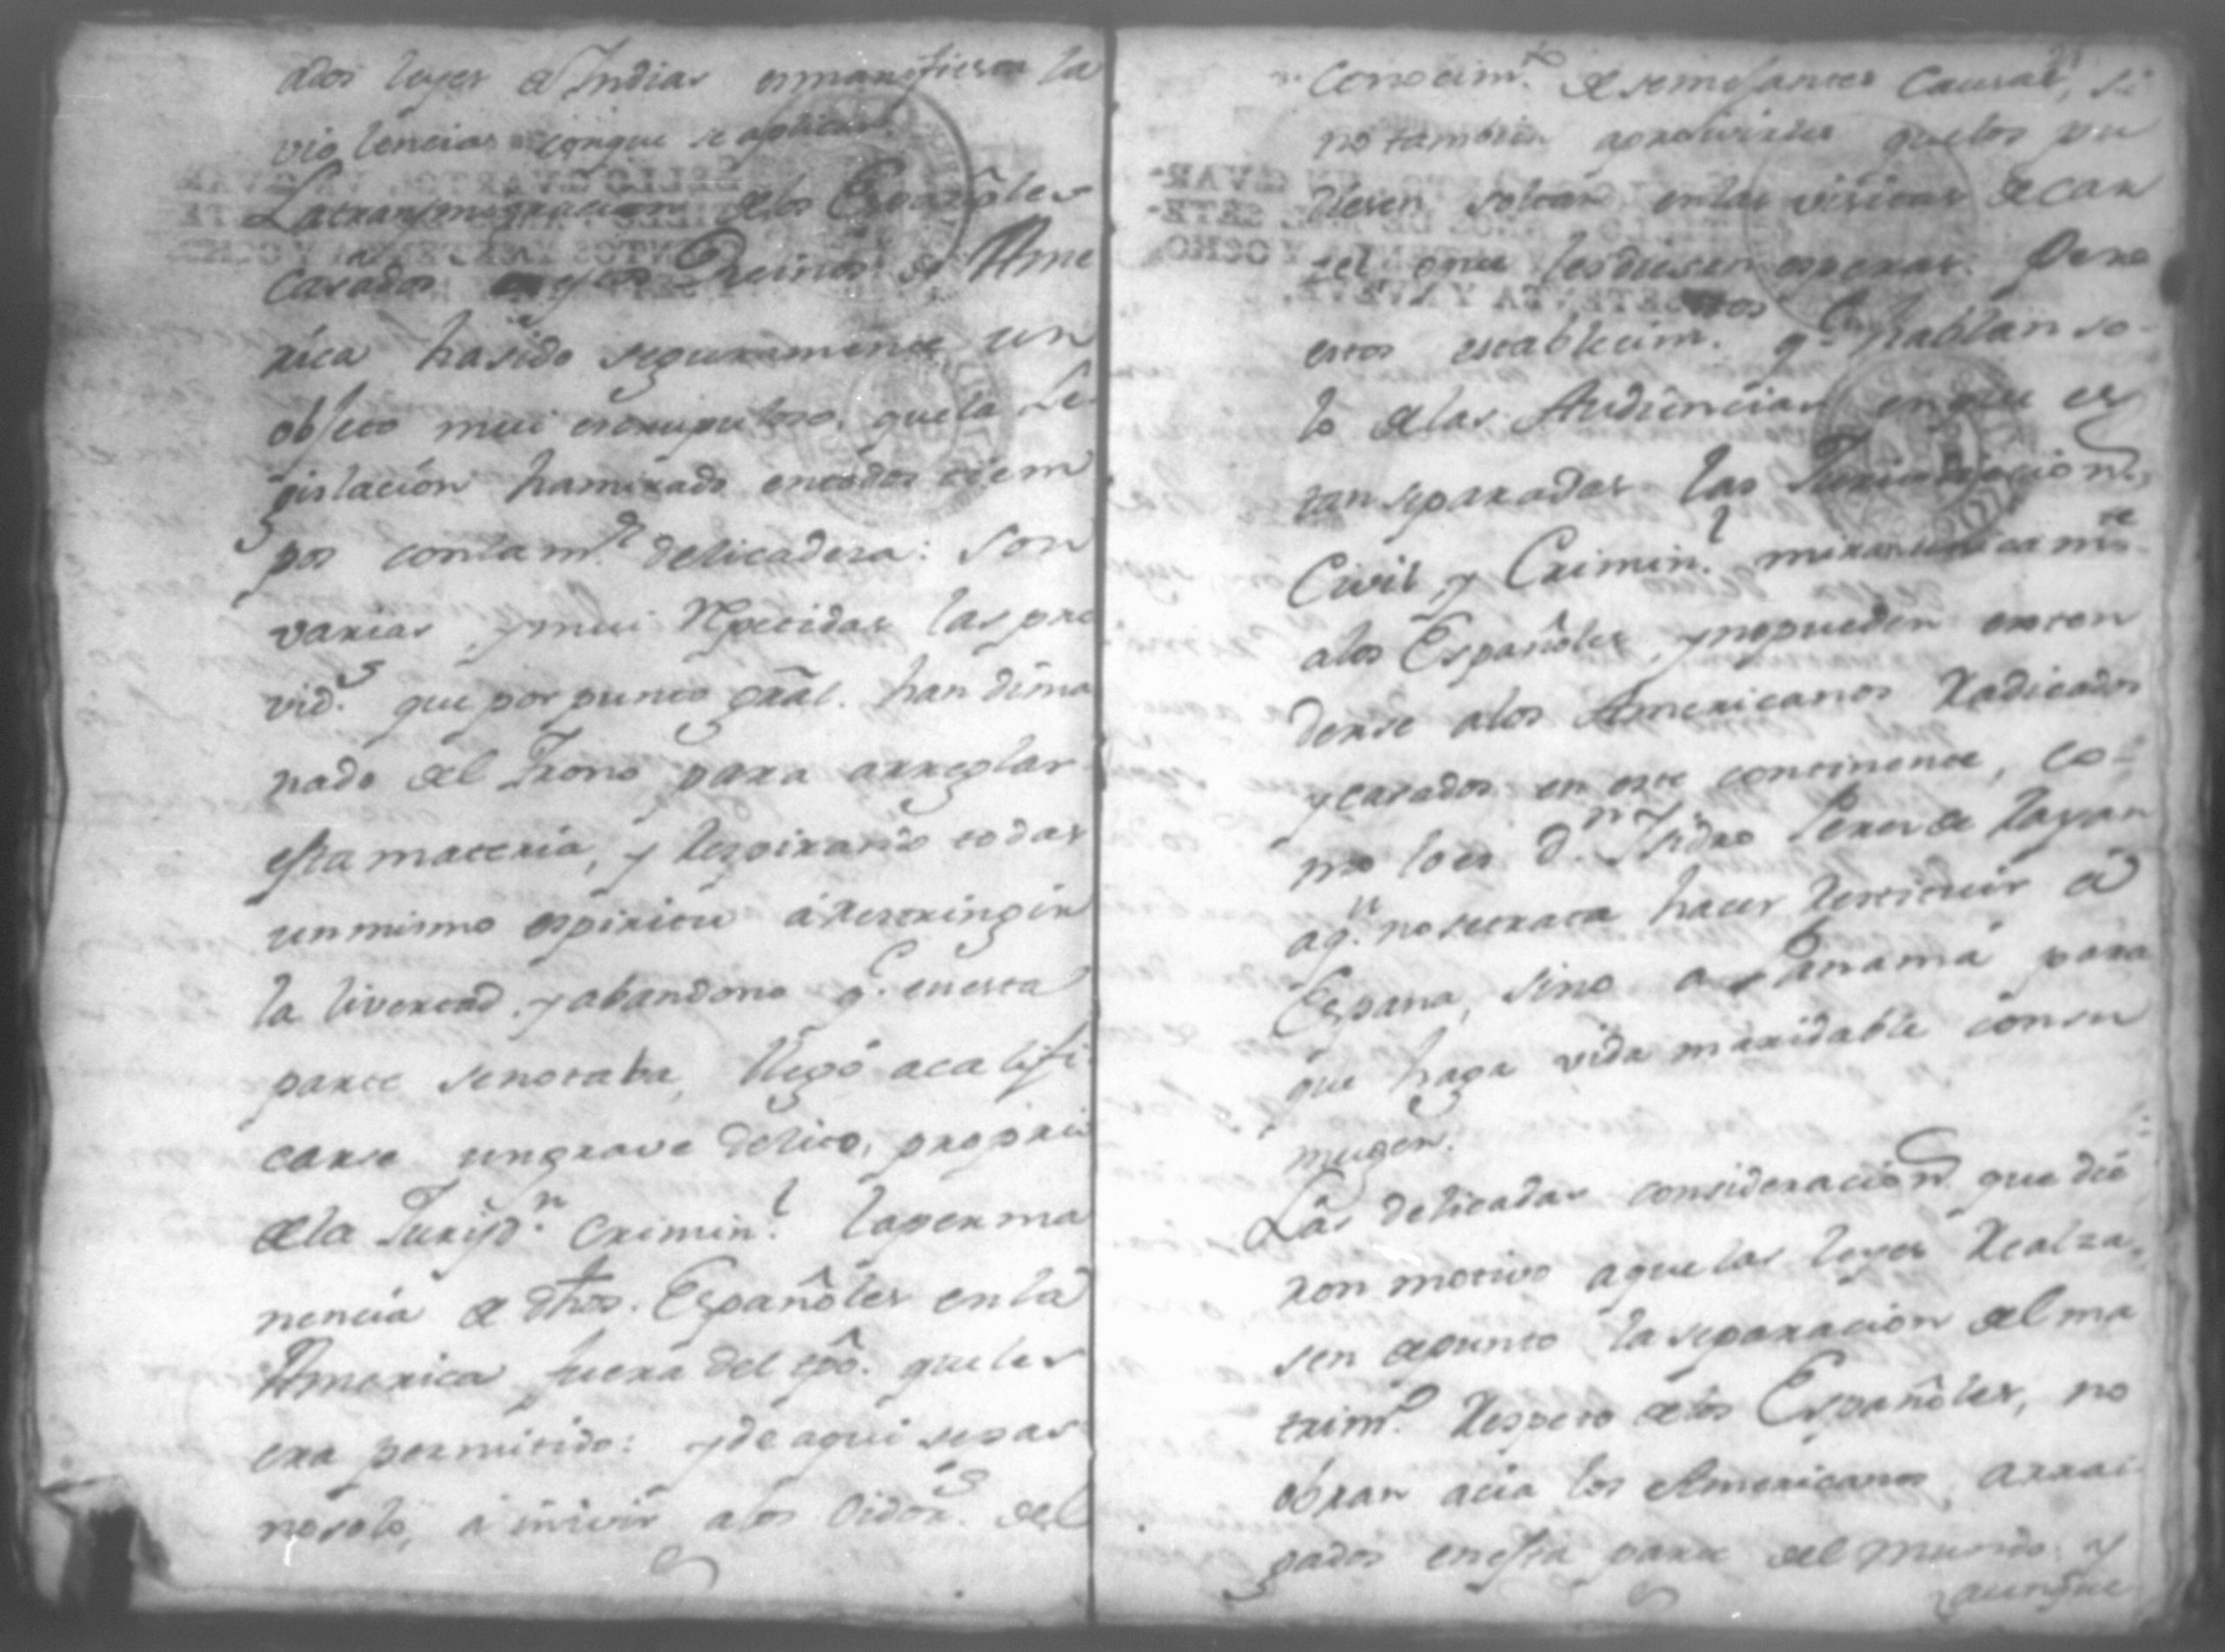 ados leyes de Indias es manifiesta la
violencia conque se aplican.
La transmigracion delos Españoles
casados Reinos de Ame
rica ha sido seguramente un
objeto mui escrupuloso, que la Le
gislación ha mirado entodos tiem
pos con la mr. delicadesa: Son
varias, y mui repetidas las pro
vids. que por punto gral. han dima
nado del Trono para arreglar
esta materia, y respirando todas
un mismo espiritu á restringir
la livertad, y abandono q.e en esta
parte se notaba, llegó a califi
carse un grave delito, proprio
dela Jurisd.n Crimin.l la perma
nencia de dhos. Españoles en la
America fuera del tpô. que les
era permitido: y de aqui se pas
no solo, á inivir a los Oidor.s del
conocim.to de semejantes causas, si
no tambien a proivirles que los pu
diesen soltar en las visitas de car
cel, o que les diesen esperas. Pero
estos establecim.tos q.e hablan so-
lo delas Audiencias en que es
tan separadas las Jurisdiccion.s
Civil, y Crimin.l miran unicam.te
a los Españoles, y no pueden enten
derse a los Americanos radicados
y casados en este continente, co-
mo lo es D.n Isidro Perez de
a q.n no se trata hacer restituir á
España, sino a Panamá para
que haga vida maridable con su
muger.
Las delicadas consideracion.s que die
ron motivo a que las leyes realza-
sen de punto la separacion del ma
trim.o respeto delos Españoles, no
obran acia los Americanos, arrai
gados en esta parte del mundo: y
aunque